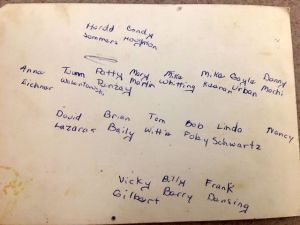 Harold Candy
Sommers Hoffman
Anna Tumm Patty Mary Mike Mike Gayle Danny
Eichner Panzay Martin Whitting Keenan Urban Mochi
David Brian Tom Bob Linda Nancy
Lazarus Baily Wittie Foby Schwartz
Vicky Billy Frank
Gilbert Barry Dansing